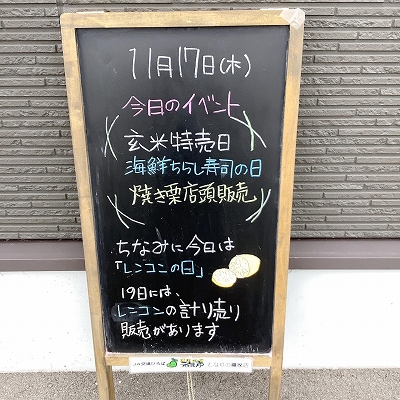 11月17日(木)
今日のイベント
玄米特売日
海鮮ちらし寿司の日
焼き栗店頭販売
ちなみに今日は
「レンコンの日」
19日には、
レンコンの計り売り
販売があります